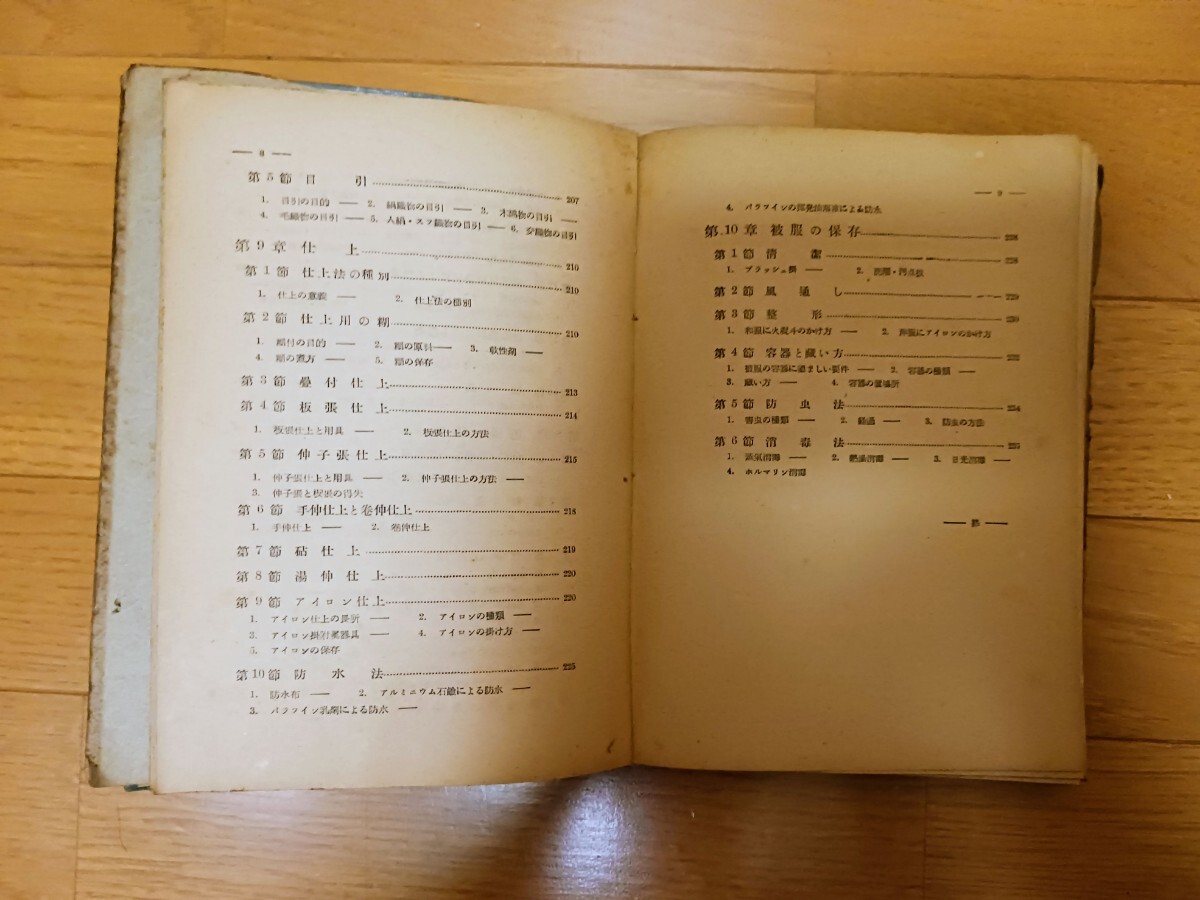 — 8 —
第5節 目 引 207
1. 目引の目的 — 2. 絹織物の目引 — 3. 木綿物の目引 —
4. 毛織物の目引 — 5. 人絹・スフ織物の目引 — 6. 交織物の目引
第9章 仕 上 210
第1節 仕上法の種別 210
1. 仕上の意義 — 2. 仕上法の種別
第2節 仕上用の糊 210
1. 糊付の目的 — 2. 糊の原料 — 3. 軟性剤 —
4. 糊の煮方 5. 糊の保存
第3節 疊付仕上 213
第4節 板張仕上 214
1. 板張仕上と用具 — 2. 板張仕上の方法
第5節 伸子張仕上 215
1. 伸子張仕上と用具 — 2. 伸子張仕上の方法 —
3. 伸子張と板張の得失
第6節 手伸仕上と卷伸仕上 218
1. 手伸仕上 — 2. 卷伸仕上
第7節 砧仕上 219
第8節 湯伸仕上 220
第9節 アイロン仕上 220
1. アイロン仕上の長所 2. アイロンの種類 —
3. アイロン掛用器具 4. アイロンの掛け方 —
5. アイロンの保存
第10節 防水法 225
1. 防水布 — 2. アルミニウム石鹼による防水 —
3. パラフイン乳劑による防水 —
— 9 —
4. パラフインの揮発油溶液による防水
第10章 被服の保存 228
第1節 清 潔 228
1. ブラッシュ掛 — 2. 洗濯・汚点拔
第2節 風通し 229
第3節 整 形 230
1. 和服に火熨斗のかけ方 — 2. 洋服にアイロンのかけ方
第4節 容器と藏い方
1. 被服の容器に望ましい要件 — 2. 容器の種類 —
3. 藏い方 — 4. 容器の置場所
第5節 防虫法 234
1. 害虫の種類 — 2. 経過 — 3. 防虫の方法
第6節 消毒法
1. 蒸氣消毒 — 2. 熱湯消毒 — 3. 日光消毒 —
4. ホルマリン消毒